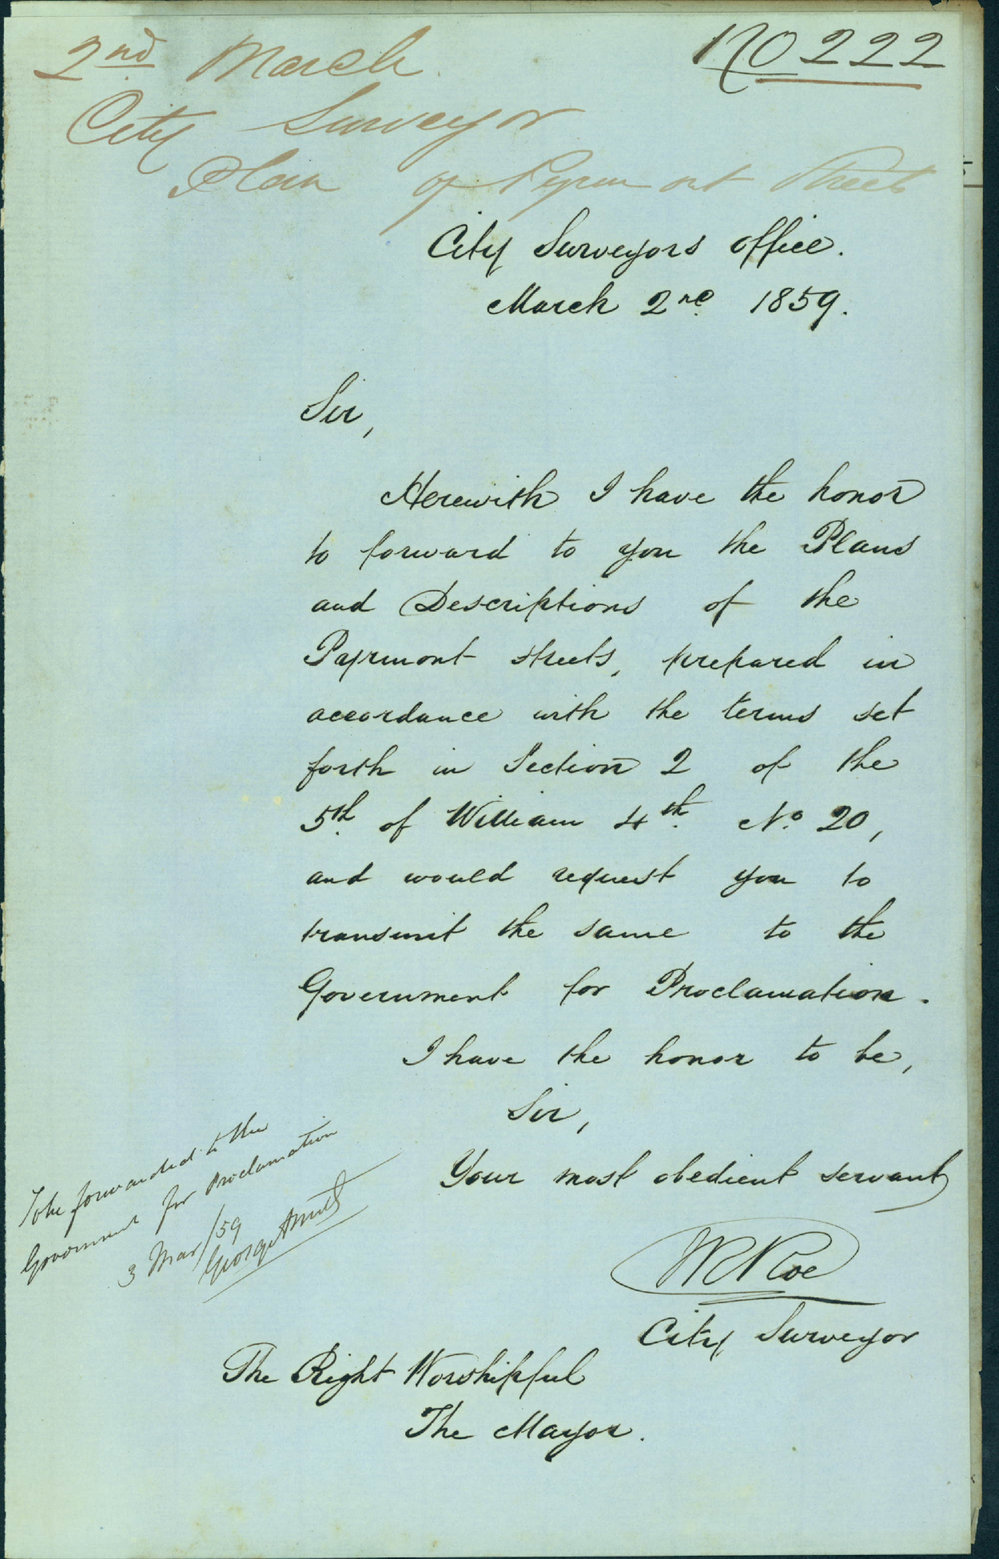 No 222
2nd March
City Surveyor
Plan of Pyrmont Streets
City Surveyors Office.
March 2nd 1859.
Sir,
Herewith I have the honor
to forward to you the Plans
and Descriptions of the
Pyrmont streets, prepared in
accordance with the terms set
forth in Section 2 of the
5th of William 4th No 20,
and would request you to
transmit the same to the
Government for Proclamation.
I have the honor to be,
Sir,
Your most obedient servant
City Surveyor
The Right Worshipful
The Mayor.
To be forwarded to the
Government for Proclamation
3 Mar/59
George Smith